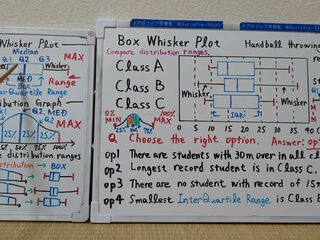 Whisker Plot
Median
Q1 Q2 Q3
MAX
Whisker
MED
Range
BOX
InterQuartile Range
bution Graph
MAX
25% 25% 25% 25%
distribution ranges
distribution → BOX
Box Whisker Plot
Handball throwing
Compare distribution ranges.
Class A
Class B
Class C
Whisker
Whisker
IQR
0% 100%
MIN MAX
25% 50% 75%
Q Choose the right option. Answer: op
op1 There are students with 30m over in all cl
op2 Longest record student is in Class C.
op3 There are no student with record of 15m
op4 Smallest InterQuartile Range is Class B